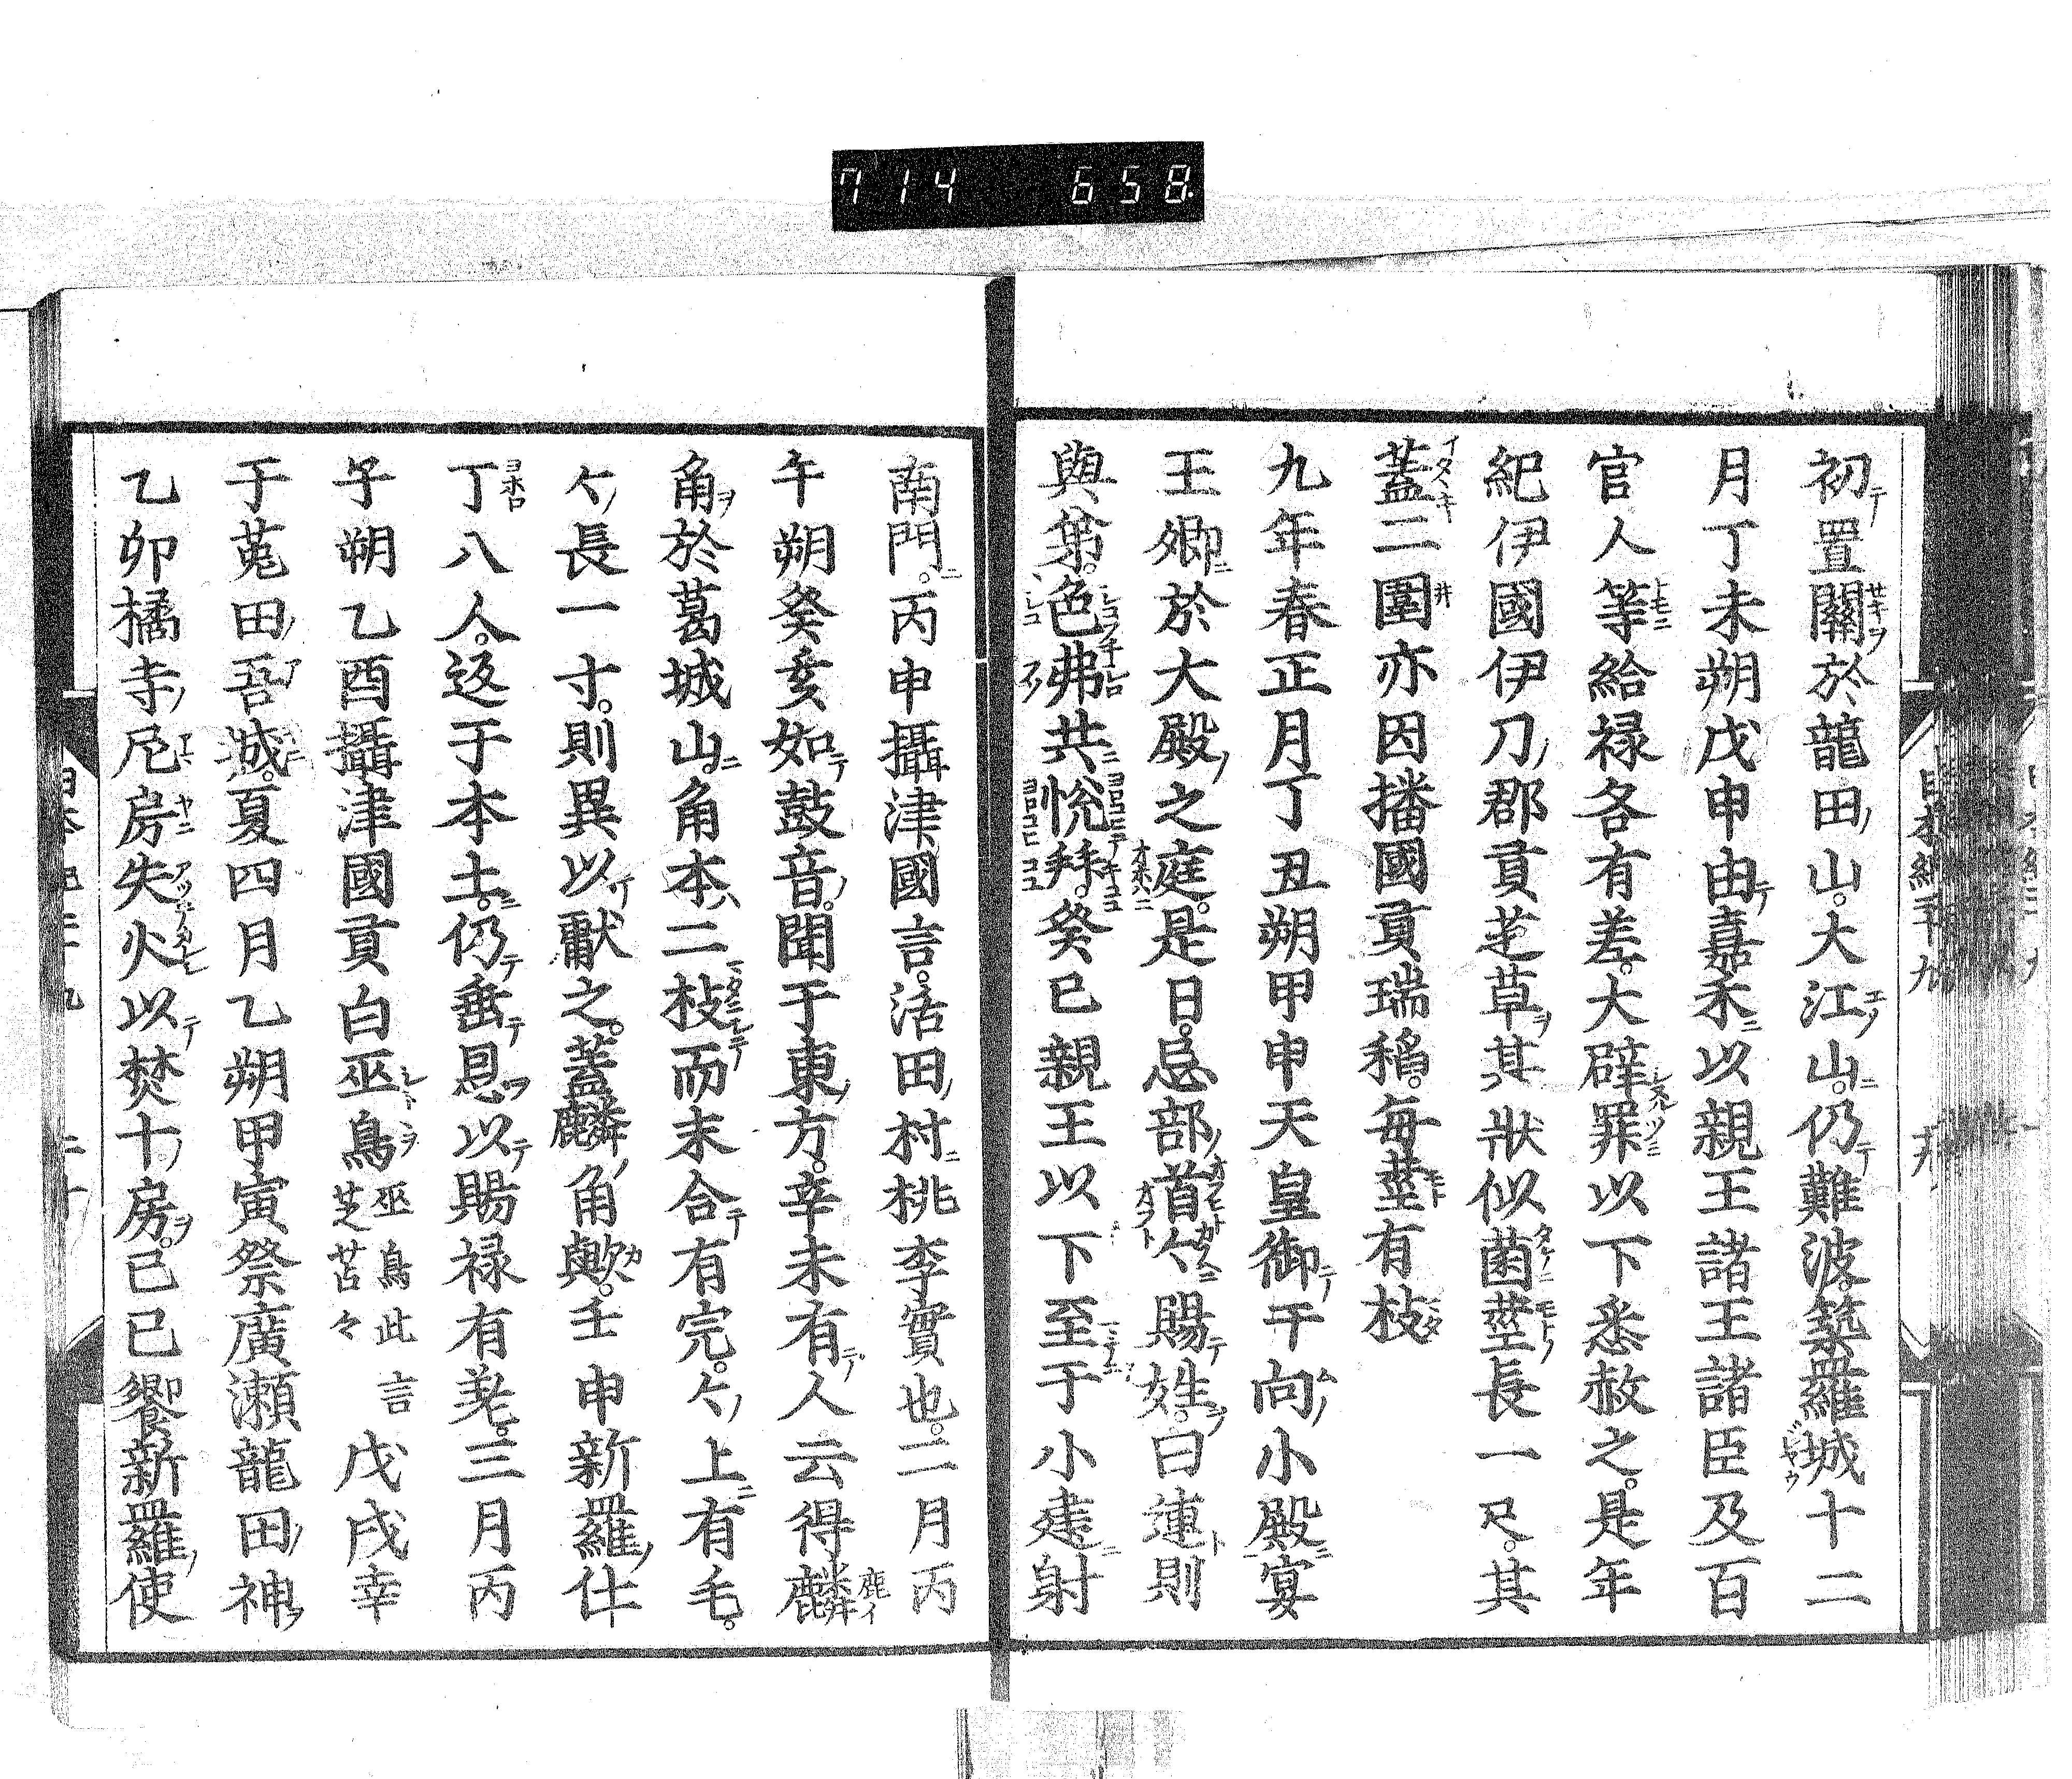 714 658
初置關於龍田山。大江山。仍難波築羅城十二
月丁未朔戊申由嘉禾以親王諸王諸臣及百
官人等給禄各有差。大辟罪以下悉赦之。是年
紀伊國伊刀郡貢芝草其狀似菌莖長一尺。其
蓋二圍亦因播國貢瑞稲。毎莖有枝
九年春正月丁丑朔甲申天皇御于向小殿宴
王卿於大殿之庭。是日。忌部首々賜姓。曰連則
與弟。色弗共悅拜。癸巳親王以下至于小建射
南門。丙申攝津國言。活田村桃李實也。二月丙
午朔癸亥如鼓音。聞于東方。辛未有人云得麟
角於葛城山。角本二枝而末合有完。々上有毛。
々長一寸。則異以獻之。蓋麟角歟。壬申新羅仕
丁八人。返于本土。仍垂恩以賜禄有差。三月丙
午朔乙酉攝津國貢白巫鳥巫鳥此言芝苫々戊戌幸
于菟田吾城。夏四月乙朔甲寅祭廣瀬龍田神
乙卯橘寺尼房失火以焚十房。己巳饗新羅使